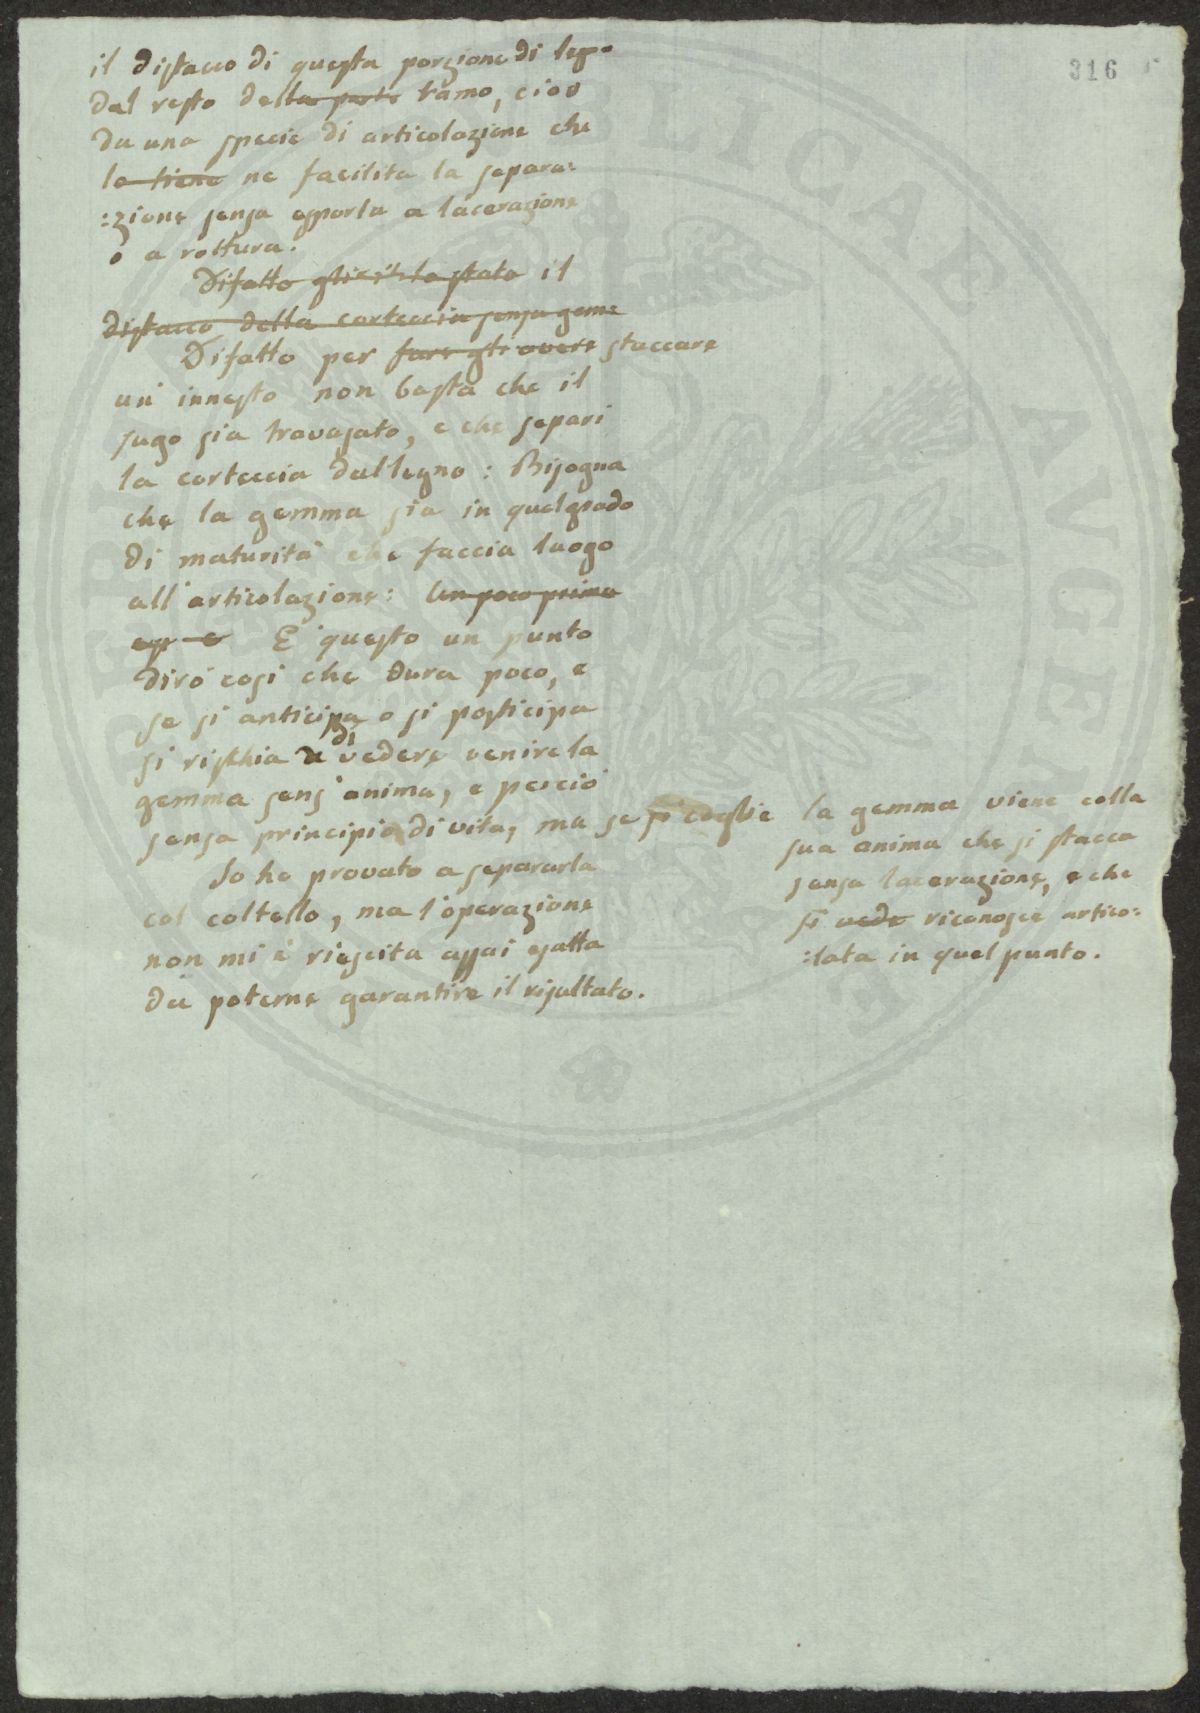 316
il distacco di questa porzione di leg.o
dal resto della parte ramo, cioè
da una specie di articolazione che
la tiene ne facilita la separa:
:zione senza esporla a lacerazione
o a rottura.
Difatto stato il
distacco della corteccia senza geme
Difatto per fare gli avere staccare
un innesto non basta che il
sugo sia travasato, e che separi
la corteccia dal legno: Bisogna
che la gemma sia in quel grado
di maturità che faccia luogo
all'articolazione: Un poco prima
E questo un punto
dirò così che dura poco, e
se si anticipa o si posticipa
si rischia di vedere venire la
gemma senz'anima, e perciò
senza principio di vita, ma se si coglie la gemma viene colla
sua anima che si stacca
senza lacerazione, e che
si vede riconosce artico:
:lata in quel punto.
Io ho provato a separarla
col coltello, ma l'operazione
non mi è riescita assai esatta
da poterne garantire il risultato.